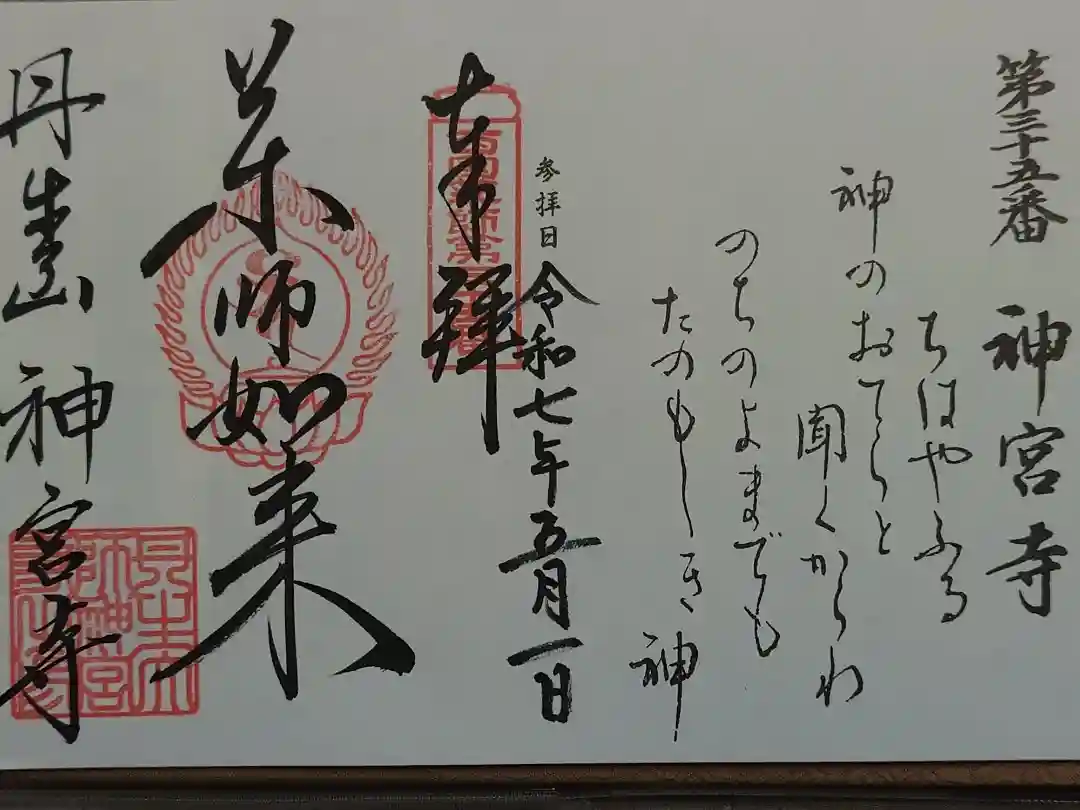 第三十五番 神宮寺
ちはやふる
神のおてらと
聞くからわ
のちのよまでも
たのもしき神
参拝日 令和七年五月一日
奉拝
薬師如来
丹生山 神宮寺